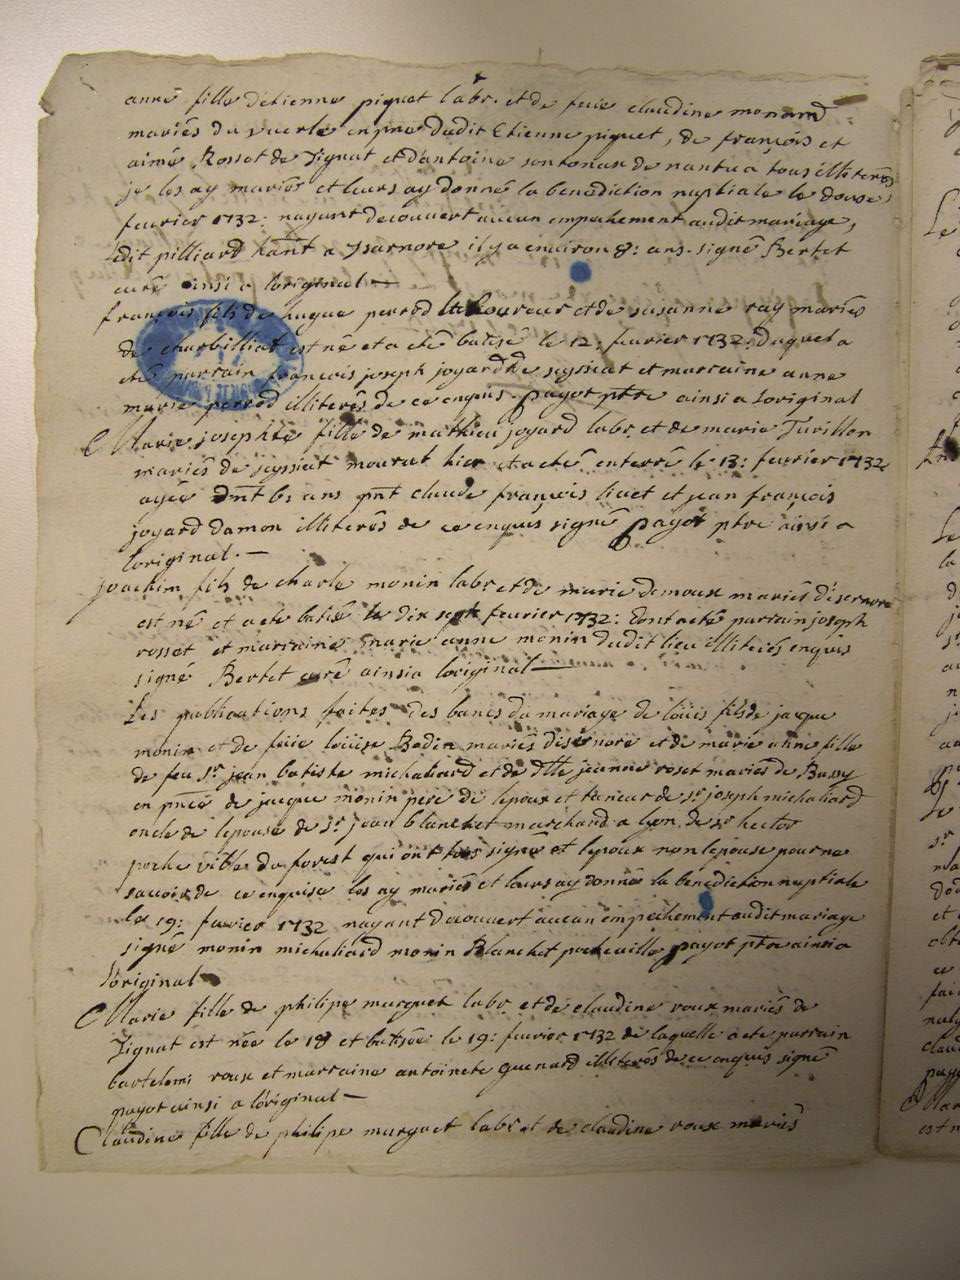 anne fille d'etienne piquet labr. et de feüe claudine monard
mariés du en pnce dudit Etienne piquet, de françois et
aimé Rosset de Zignat et d'antoine sontonax de nantua tous illiterés
je les ay mariés et leurs ay donné la benediction nuptiale le douse
feuvrier 1732: nayant decouvert aucun empechement audit mariage,
ledit pilliard hānt a ysarnore il y a environ 8: ans. signé Bertet
curé ainsi a loriginal —
françois fils de hugue perrod laboureur et de susanne ray mariés
de charbilliat est né et a eté batisé le 12: feuvrier 1732: duquel a
eté parrain françois joseph joyard de seyssiat et marraine anne
marie perrod illiterés de ce enquis. payot ptre ainsi a Loriginal
Marie josephte fille de mathieu joyard labr. et de marie Turillon
mariés de seyssiat mourut hier et a eté enterré le 13: feuvrier 1732
agée dnt 6 ans pnt claude françois liuet et jean françois
joyard damon illiterés de ce enquis signé payot ptre ainsi a
loriginal. —
joachim fils de charle monin labr. et de marie demoux mariés d'isernore
est né et a eté batisé le dix sept feuvrier 1732: Eont a eté parrain joseph
rosset et marraine marie anne monin dudit lieu illiterés enquis
signé Bertet curé ainsi a loriginal —
Les publications faites des bancs du mariage de loüis fils de jacque
monin et de feüe loüise Bodin mariés disernore et de marie anne fille
de feu sr. jean batiste michaliard et de Dlle jeanne roset mariés de Bussy
en pnce de jacque monin pere de lepoux et tuteur de sr. joseph michaliard
oncle de lepouse de sr. jean blanchet marchand a lyon de sr hector
porhe ville du forest qui ont tous signé et lepoux non lepouse pour ne
savoir de ce enquise les ay mariés et leurs ay donné la bénédiction nuptiale
le 19: fuvrier 1732 nayant decouvert aucun empechement audit mariage
signé monin michaliard monin Blanchet porheville payot ptre ainsi a
loriginal
Marie fille de philipe murguet labr et de claudine roux mariés de
Zignat est née le 18 et batisée le 19: fuvrier 1732 de laquelle a eté parrain
bartelemi roux et marraine antoinete guenard illiterés de ce enquis signé
payot ainsi a loriginal —
Claudine fille de philipe murguet labr et de claudine roux mariés